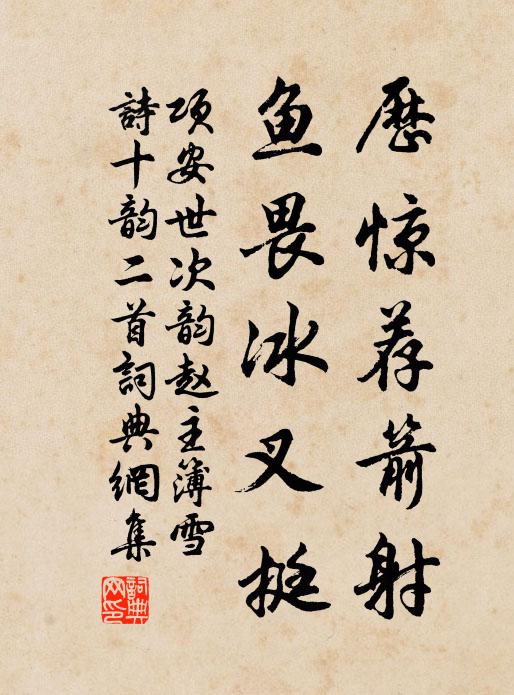 历惊荐箭射
鱼畏冰叉挺
项安世次韵赵主簿雪
詩十韵二首詞典網集
詞典网印